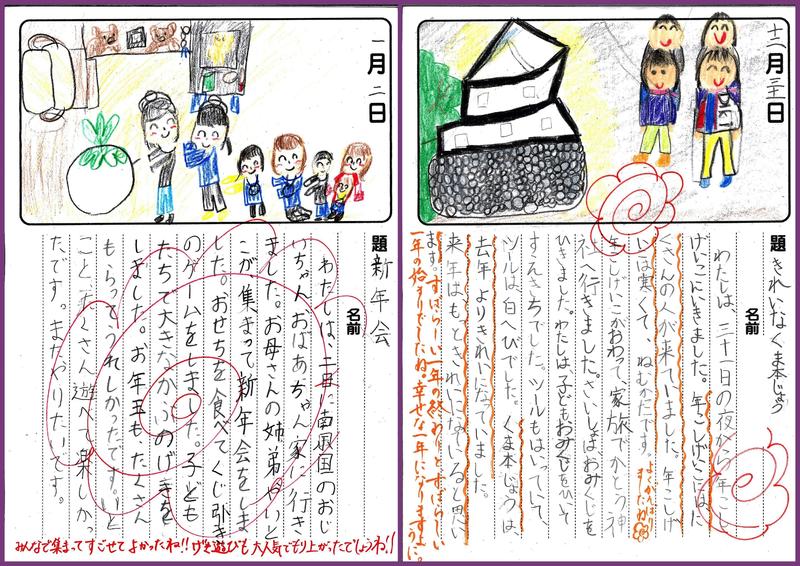 十二月三十一日
題 きれいなくま本じょう
名前
わたしは、三十一日の夜から年こし
げいこにいきました。年こしげいこは、た
くさんの人が来ていました。年こしげ
いこは寒くて、ねむかたです。
よくがんばり
ましたね
年こしげいこがおわって家族でかとう神
社へ行きました。さいしょはおみくじを
ひきました。わたしは子どもおみくじをひいて
すえきちでした。ツールもはいっていて、
ツールは、白へびでした。くま本じょうは、
去年よりきれいになっていました。
来年は、もっときれいになていると思い
ます。すばらしい一年の終わりとすばらしい
一年の始りでしたね。幸せな一年になりますように。
一月二日
題 新年会
名前
わたしは、二日に南国のおじ
いちゃんおばあちゃん家に行き
ました。お母さんの姉弟やいと
こが集まって新年会をしま
した。おせちを食べてくじ引き
のゲームをしました。子ども
たちで大きなかぶのげきを
しました。お年玉もたくさん
もらってうれしかったです。いと
ことたくさん遊べて楽しかっ
たです。またやりたいです。
みんなで集まってすごせてよかったね!!げき遊びも大人気でもり上がったでしょうね!!